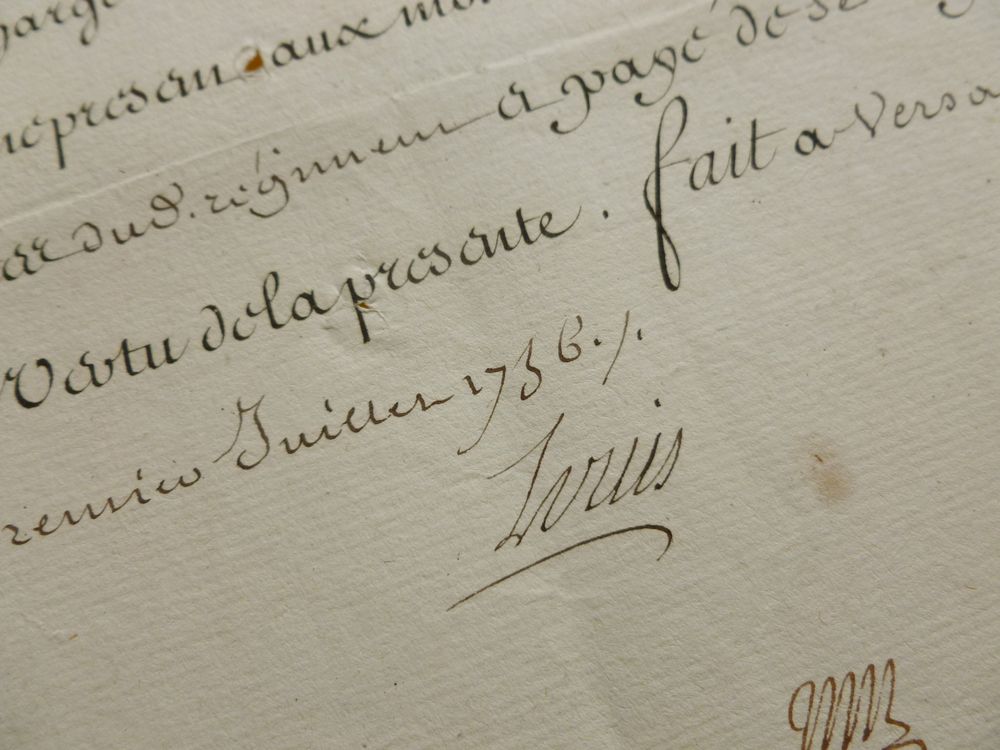 represent aux mo
dud. régiment a payé de se
Vertu de la presente. fait a Versa
remier Juillet 1736./.
Louis